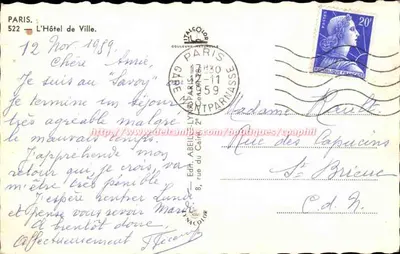 PARIS.
522 - L'Hôtel de Ville.
12 Nov. 1959.
Chère Amie,
Je suis au "Savoy"
Je termine un séjour
très agréable malgré
le mauvais temps.
J'appréhende mon
retour qui, je crois, va
m'être très pénible
J'espère rentrer Lundi
et pense vous revoir Mardi
A bientôt donc.
Affectueusement
PARIS
17H30
12-11
1959
GARE MONTPARNASSE
20F
Madame
Rue des Capucins
St Brieuc
C.d.N.
http://www.delcampe.com/boutiques/cpaphil